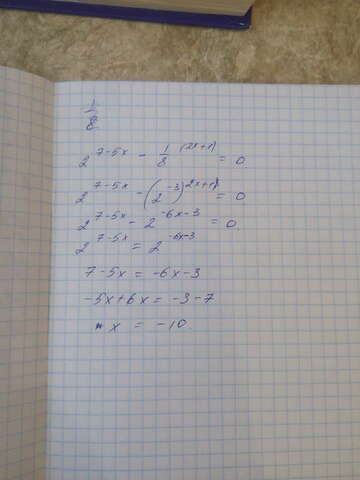 1/8
2^{7-5x} - 1/8^{(2x+1)} = 0
2^{7-5x} - (2^{-3})^{2x+1} = 0
2^{7-5x} - 2^{-6x-3} = 0.
2^{7-5x} = 2^{-6x-3}
7-5x = -6x-3
-5x+6x = -3-7
x = -10.